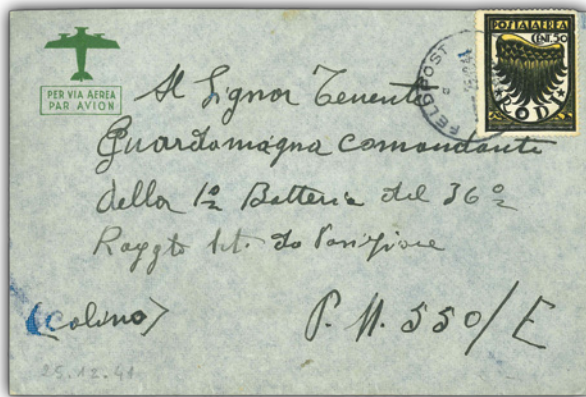 PER VIA AEREA
PAR AVION
POSTA AEREA
CENT. 50
RODI
FELDPOST
Al Signor Tenente
Guardamagna comandante
della 1ª Batteria del 36º
Raggto Art. da Posizione
(Calino) P. M. 550/E
25.12.41